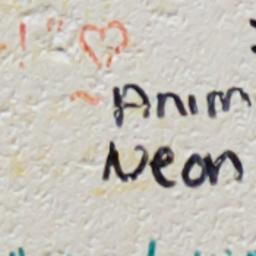 ! ♡
~ Anim
Neon